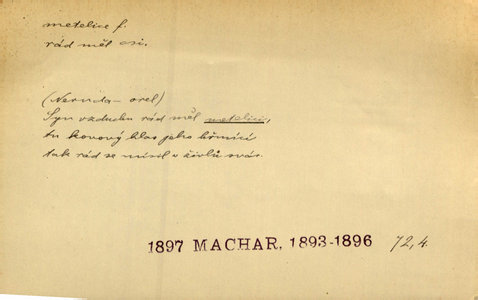 metelice f.
rád měl csi.
(Neruda – orel)
Syn vzduchu rád měl metelici,
tu kovový hlas jeho hřmící
tak rád se mísil v živlů svár.
1897 MACHAR, 1893-1896 72,4